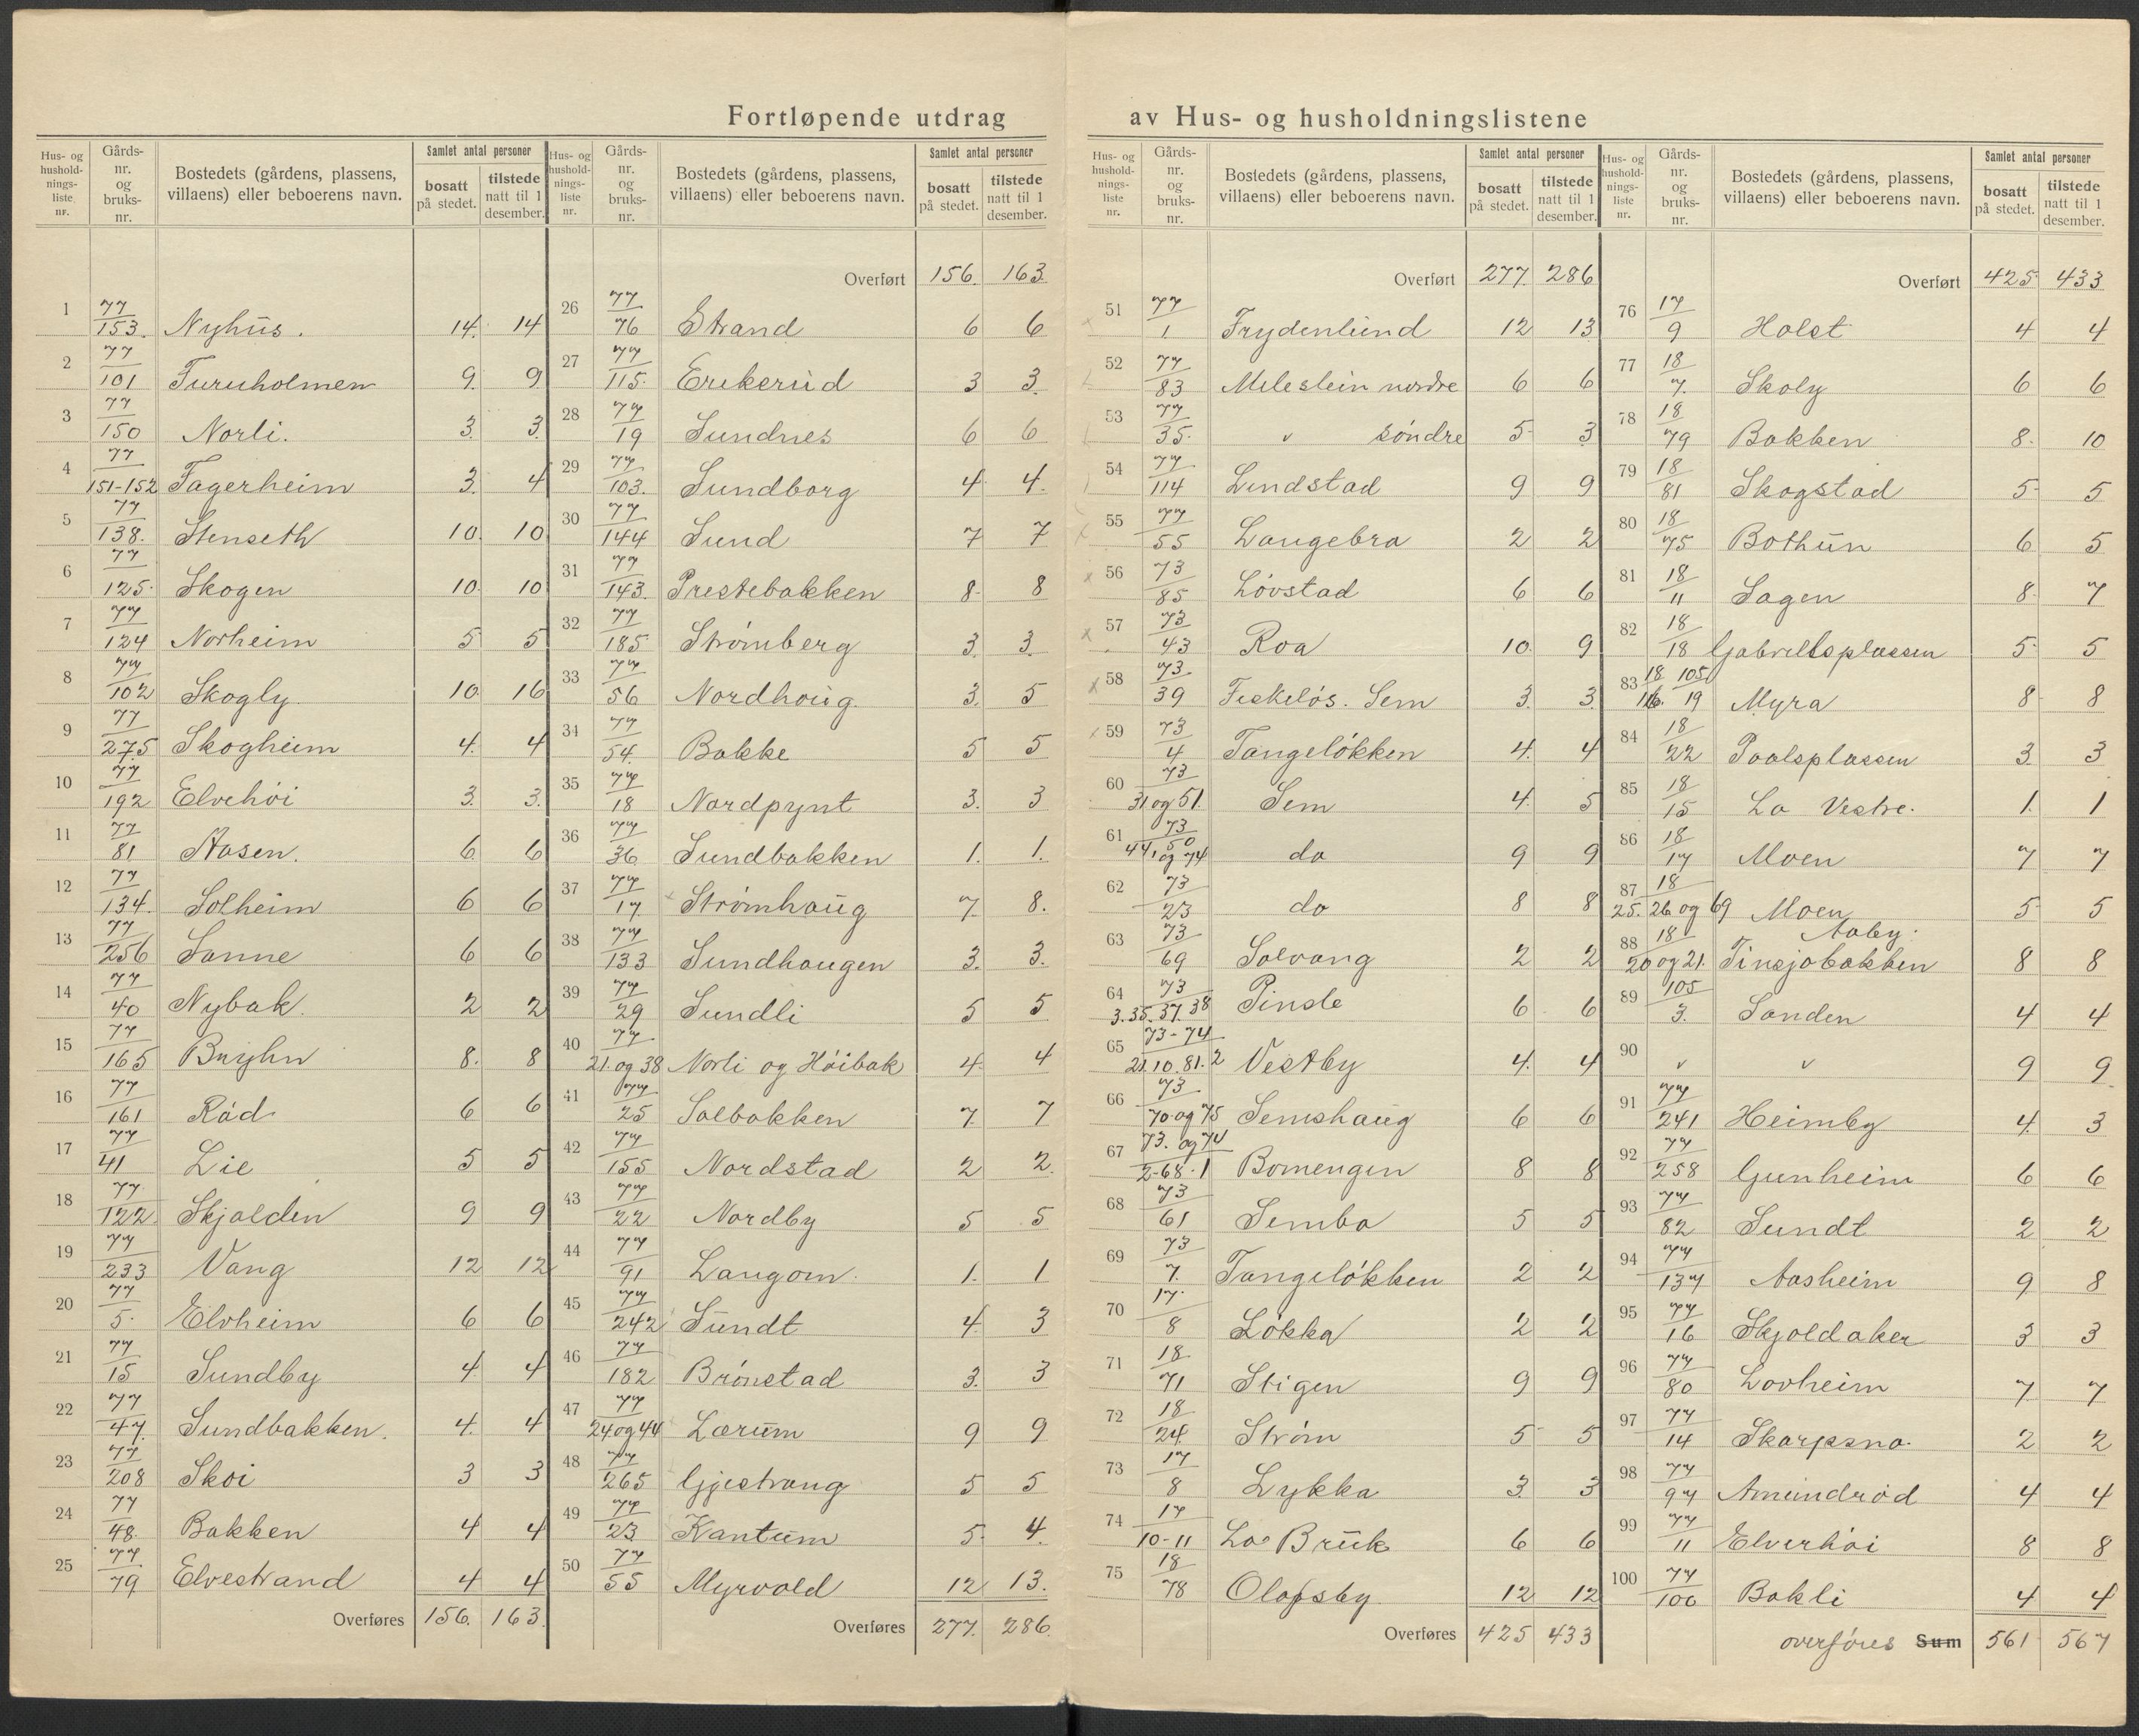 Fortløpende utdrag av Hus- og husholdningslistene
Hus- og hushold-nings-liste nr. | Gårds-nr. og bruks-nr. | Bostedets (gårdens, plassens, villaens) eller beboerens navn. | Samlet antal personer | bosatt på stedet. | tilstede natt til 1 desember.
1 77/153. Nyhus. 14. 14
2 77/101 Furuholmen 9. 9
3 77/150 Norli. 3. 3.
4 77/151-152 Fagerheim 3. 4
5 77/138. Stenseth 10. 10
6 77/125. Skogen 10. 10
7 77/124 Norheim 5 5
8 77/102 Skogly 10 16
9 77/275 Skogheim 4. 4
10 77/192 Elvehöi 3. 3.
11 77/81 Aasen. 6. 6
12 77/134. Solheim 6 6
13 77/256 Sanne 6 6
14 77/40 Nybak. 2 2
15 77/165 Bryhn 8. 8
16 77/161 Råd 6 6
17 77/41 Lie 5 5
18 77/122 Skjalden 9 9
19 77/233 Vang 12 12
20 77/5. Elvheim 6 6
21 77/15 Sundby 4. 4
22 77/47. Sundbakken. 4. 4
23 77/208 Skoi 3 3
24 77/48. Bakken 4 4
25 77/79 Elvestrand 4 4
Overføres 156. 163
Hus- og hushold-nings-liste nr. | Gårds-nr. og bruks-nr. | Bostedets (gårdens, plassens, villaens) eller beboerens navn. | Samlet antal personer | bosatt på stedet. | tilstede natt til 1 desember.
Overført 156. 163.
26 77/76 Strand 6 6
27 77/115. Erikerud 3 3.
28 77/19 Sundnes 6 6
29 77/103. Sundborg 4 4.
30 77/144 Sund 7 7
31 77/143. Prestebakken 8. 8
32 77/185 Strömberg 3. 3.
33 77/56 Nordhoug. 3. 5
34 77/54. Bakke 5 5
35 77/18 Nordpynt 3. 3
36 77/36 Sundbakken 1. 1.
37 77/17 Strömhaug 7. 8.
38 77/133 Sundhaugen 3. 3.
39 77/29 Sundli 5 5
40 77/21. og 38 Norli og Höibak 4. 4
41 77/25 Solbakken 7. 7
42 77/155 Nordstad 2 2.
43 77/22 Nordby 5 5
44 77/91 Langom. 1. 1
45 77/242 Sundt 4. 3
46 77/182 Brönstad 3. 3
47 77/24 og 44 Lærum 9 9
48 77/265 Gjestvang 5 5
49 77/23 Kantum 5. 4.
50 77/55 Myrvold 12 13.
Overføres 277. 286.
Hus- og hushold-nings-liste nr. | Gårds-nr. og bruks-nr. | Bostedets (gårdens, plassens, villaens) eller beboerens navn. | Samlet antal personer | bosatt på stedet. | tilstede natt til 1 desember.
Overført 277. 286
51 77/1. Frydenlund 12 13
52 77/83 Milestein nordre 6 6
53 77/35. " söndre 5 3
54 77/114 Lindstad 9 9
55 77/55 Langebra 2 2
x 56 73/85 Lövstad 6 6
x 57 73/43 Roa 10. 9
x 58 73/39 Fiskelös. Sem 3. 3.
x 59 73/4 Tangelökken 4. 4
60 73/31 og 51. Sem 4. 5
61 73/44, 50 og 74 do 9 9
62 73/23 do 8 8
63 73/69 Solvang 2 2
64 73/3. 35. 37. 38 Pinsle 6 6
65 73-74/21. 10. 81. 2 Vestby 4. 4
66 73/70 og 75 Semshaug 6 6
67 73. og 74/2-68-1 Bomengen 8 8
68 73/61 Sembo 5 5
69 73/7. Tangelökken 2 2
70 17/8 Lökka 2 2
71 18/71 Stigen 9 9
72 18/24. Ström 5 5
73 17/8 Lykka 3 3
74 17/10-11 Lo Bruk 6 6
75 18/78 Olafsby 12 12
Overføres 425 433
Hus- og hushold-nings-liste nr. | Gårds-nr. og bruks-nr. | Bostedets (gårdens, plassens, villaens) eller beboerens navn. | Samlet antal personer | bosatt på stedet. | tilstede natt til 1 desember.
Overført 425 433
76 17/9 Holst 4 4
77 18/7. Skoly 6 6
78 18/79 Bakken 8. 10
79 18/81 Skogstad 5 5
80 18/75 Bothun 6 5
81 18/11 Sagen 8. 7
82 18/18 Gabrielsplassen 5 5
83 18 105/116. 19 Myra 8 8
84 18/22 Paalsplassen 3 3
85 18/15 Lo Vestre. 1. 1
86 18/17 Moen 7 7
87 18/25. 26 og 69 Moen 5 5
88 18/20 og 21. Aaby. Tinsjobakken 8 8
89 105/3. Sanden 4 4
90 " " 9 9
91 77/241 Heimby 4. 3
92 77/258 Gunheim 6 6
93 77/82 Sundt 2 2
94 77/137 Aasheim 9 8
95 77/16 Skjoldaker 3 3
96 77/80 Lovheim 7 7
97 77/14 Skarpsno. 2 2
98 77/97 Amundröd 4 4
99 77/11 Elverhöi 8 8
100 77/100 Bakli 4 4
overföres Sum 561 567